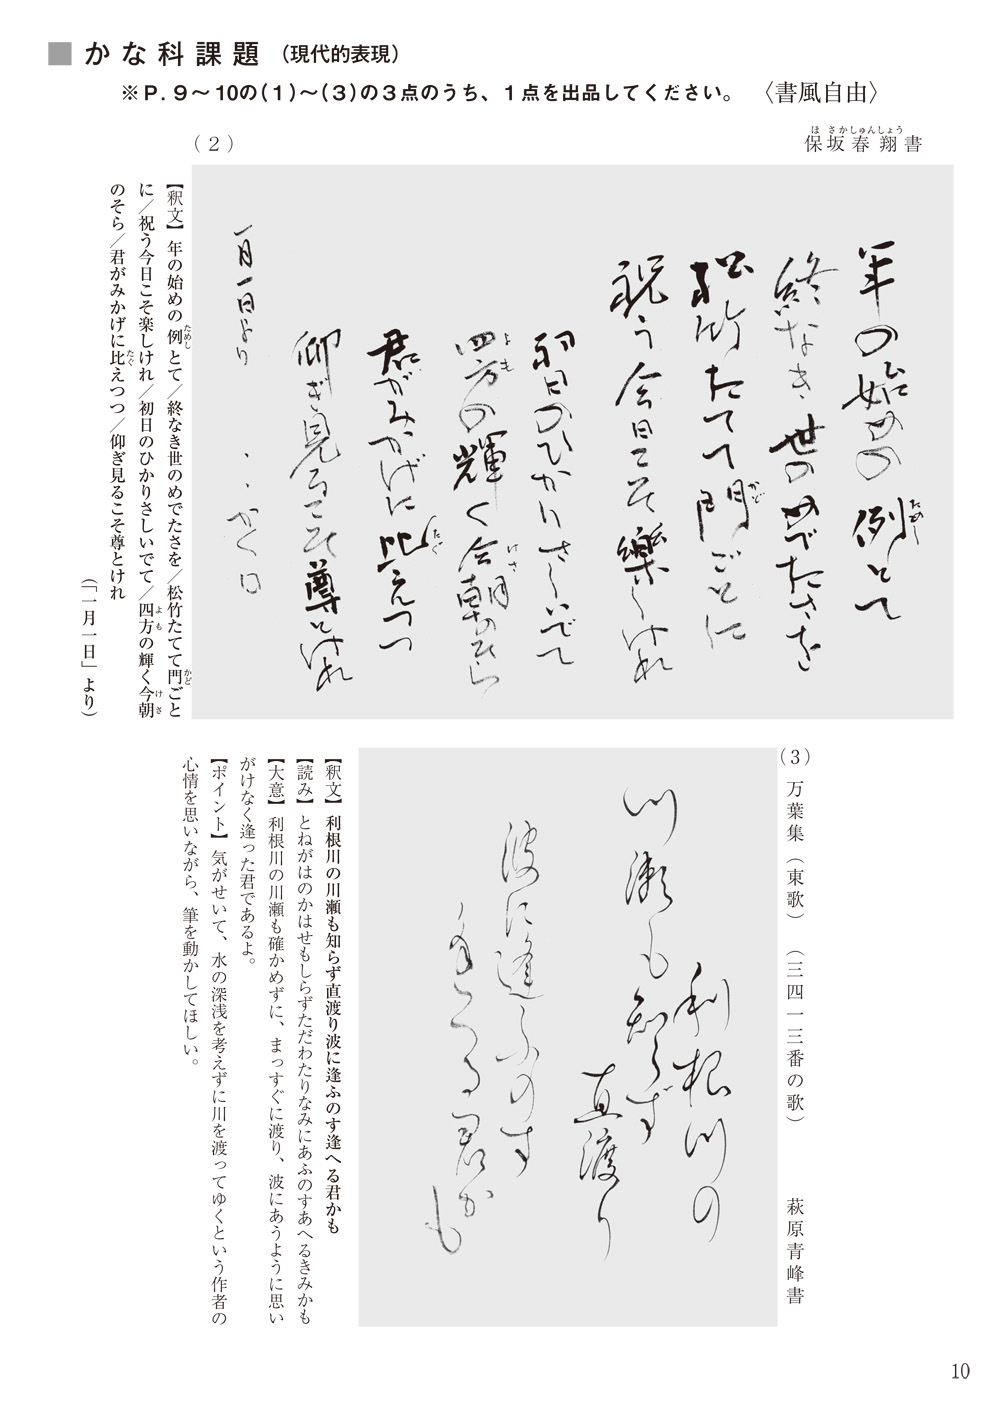 ■かな科課題（現代的表現）
※P.9～10の(1)～(3)の3点のうち、1点を出品してください。　〈書風自由〉
保坂春翔書
ほさかしゅんしょう
(2)
年の始めの例とて
ためし
終なき世のめでたさを
松竹たてて門ごとに
かど
祝う今日こそ樂しけれ
初日のひかりさしいでて
四方の輝く今朝のそら
よも
けさ
君がみかげに比えつつ
たぐ
仰ぎ見るこそ尊とけれ
一月一日より
かく
【釈文】年の始めの例とて／終なき世のめでたさを／松竹たてて門ごと
ためし
かど
に／祝う今日こそ楽しけれ／初日のひかりさしいでて／四方の輝く今朝
よも
けさ
のそら／君がみかげに比えつつ／仰ぎ見るこそ尊とけれ
たぐ
（「一月一日」より）
(3)
万葉集（東歌）（三四一三番の歌）　萩原青峰書
利根川の
川瀬も知らず
直渡り
波に逢ふのす
逢へる君かも
【釈文】利根川の川瀬も知らず直渡り波に逢ふのす逢へる君かも
【読み】とねがはのかはせもしらずただわたりなみにあふのすあへるきみかも
【大意】利根川の川瀬も確かめずに、まっすぐに渡り、波にあうように思い
がけなく逢った君であるよ。
【ポイント】気がせいて、水の深浅を考えずに川を渡ってゆくという作者の
心情を思いながら、筆を動かしてほしい。
10